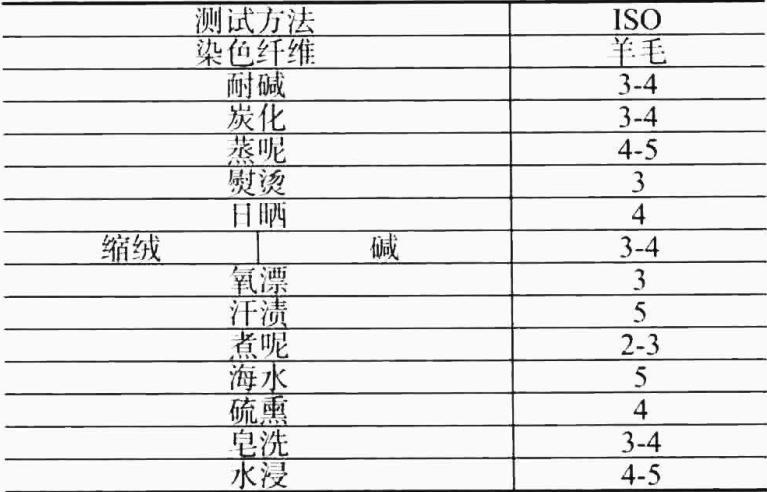 测试方法 ISO
染色纤维 羊毛
耐碱 3-4
炭化 3-4
蒸呢 4-5
熨烫 3
日晒 4
缩绒 碱 3-4
氧漂 3
汗渍 5
煮呢 2-3
海水 5
硫熏 4
皂洗 3-4
水浸 4-5